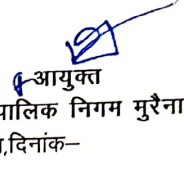 आयुक्त
पालिक निगम मुरैना
,दिनांक–